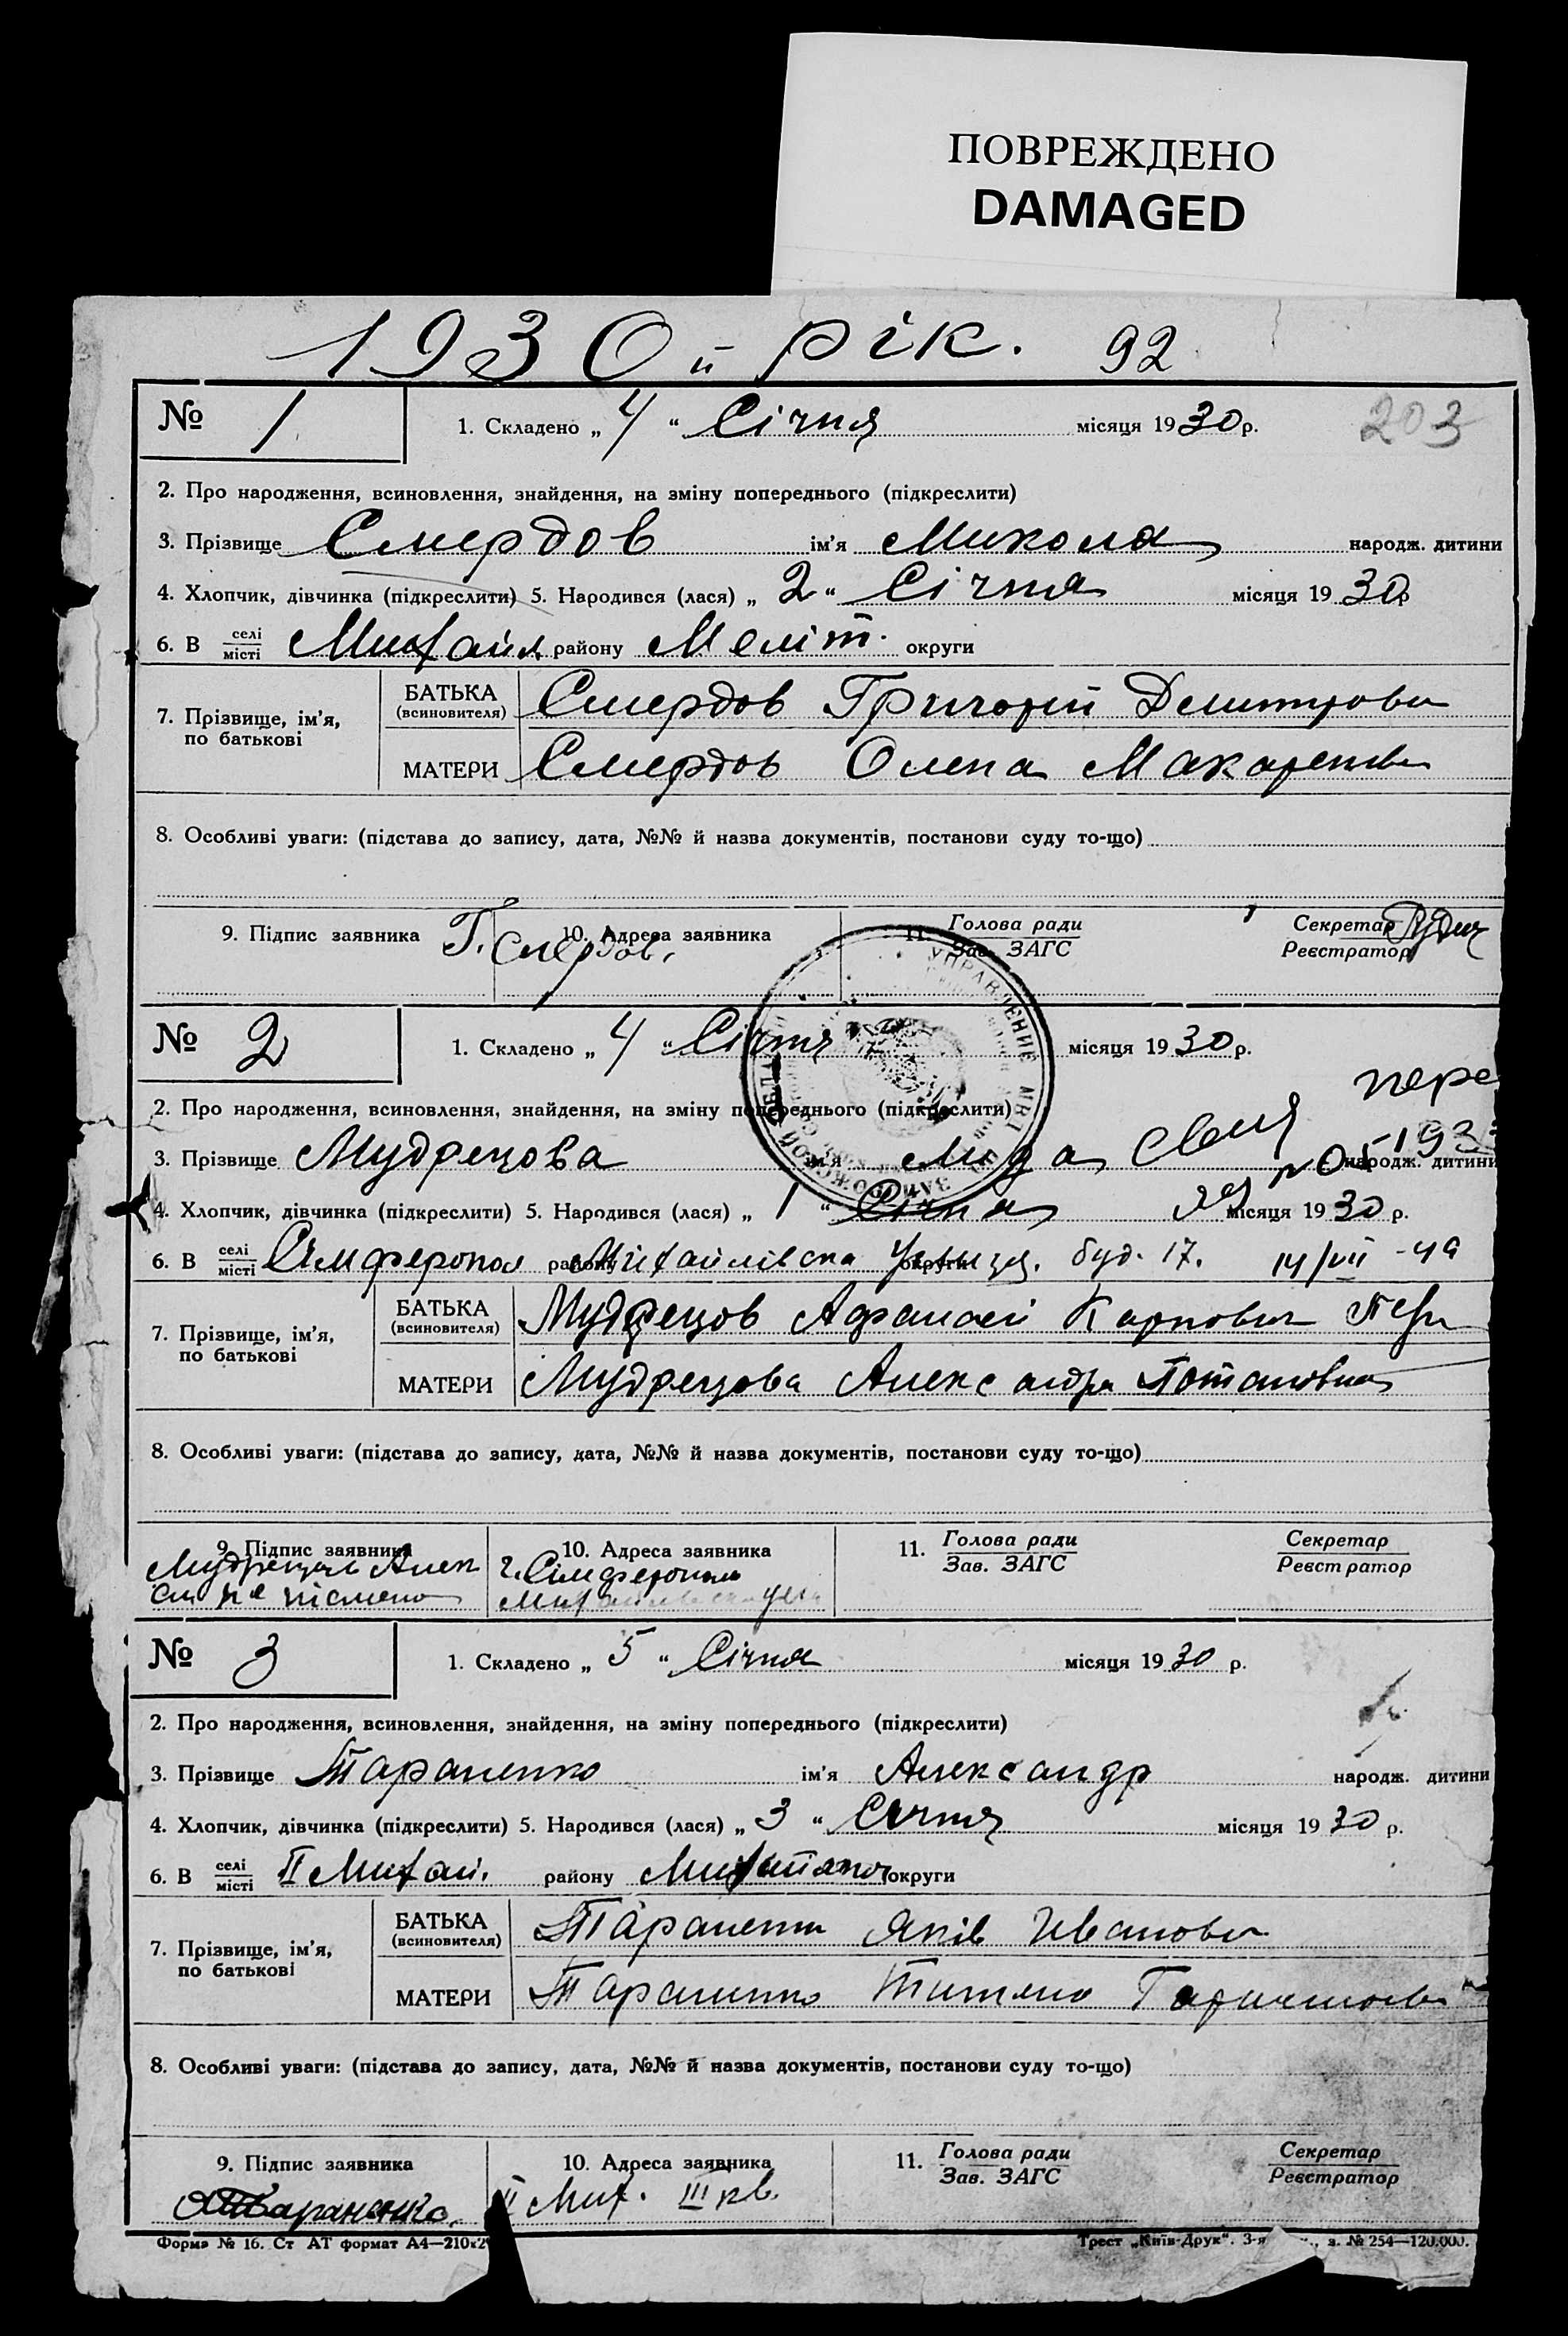 ПОВРЕЖДЕНО
DAMAGED
1930 й рік. 92
№ 1 1. Складено „ 4 “ Січня місяця 1930 р. 203
2. Про народження, всиновлення, знайдення, на зміну попереднього (підкреслити)
3. Прізвище Смердов ім'я Микола народж. дитини
4. Хлопчик, дівчинка (підкреслити) 5. Народився (лася) „ 2 “ Січня місяця 1930 р
6. В селі місті Михайл. району Меліт. округи
7. Прізвище, ім'я, по батькові
БАТЬКА (всиновителя) Смердов Григорій Демитрови
МАТЕРИ Смердов Олена Макаренев
8. Особливі уваги: (підстава до запису, дата, №№ й назва документів, постанови суду то-що)
9. Підпис заявника 10. Адреса заявника 11. Голова ради Зав. ЗАГС Секретар Реєстратор
Г. Смердов.
УПРАВЛЕНИЕ МВД
№ 2 1. Складено „ 4 “ Січня місяця 1930 р.
пере
2. Про народження, всиновлення, знайдення, на зміну попереднього (підкреслити)
3. Прізвище Мудрецова ім'я Лида народж. дитини
4. Хлопчик, дівчинка (підкреслити) 5. Народився (лася) „ 1 “ Січня місяця 1930 р.
6. В селі місті Сімферопол району Міхайлівска округи улица. буд. 17. 14/VII -49
7. Прізвище, ім'я, по батькові
БАТЬКА (всиновителя) Мудрецов Афанасій Карпович
МАТЕРИ Мудрецова Александра Потаповна
8. Особливі уваги: (підстава до запису, дата, №№ й назва документів, постанови суду то-що)
9. Підпис заявника 10. Адреса заявника 11. Голова ради Зав. ЗАГС Секретар Реєстратор
Мудрецова Алек г. Сімферополь
не пісмено
№ 3 1. Складено „ 5 “ Січня місяця 1930 р.
2. Про народження, всиновлення, знайдення, на зміну попереднього (підкреслити)
3. Прізвище Тараненко ім'я Александр народж. дитини
4. Хлопчик, дівчинка (підкреслити) 5. Народився (лася) „ 3 “ Січня місяця 1930 р.
6. В селі місті II Михай. району округи
7. Прізвище, ім'я, по батькові
БАТЬКА (всиновителя) Тараненко Яків Иванови
МАТЕРИ Тараненко Титяна
8. Особливі уваги: (підстава до запису, дата, №№ й назва документів, постанови суду то-що)
9. Підпис заявника 10. Адреса заявника 11. Голова ради Зав. ЗАГС Секретар Реєстратор
Тараненко. II Мих. III кв.
Форма № 16. Ст АТ формат А4—210x2 Трест „Київ-Друк“. 3-я з. № 254—120.000.